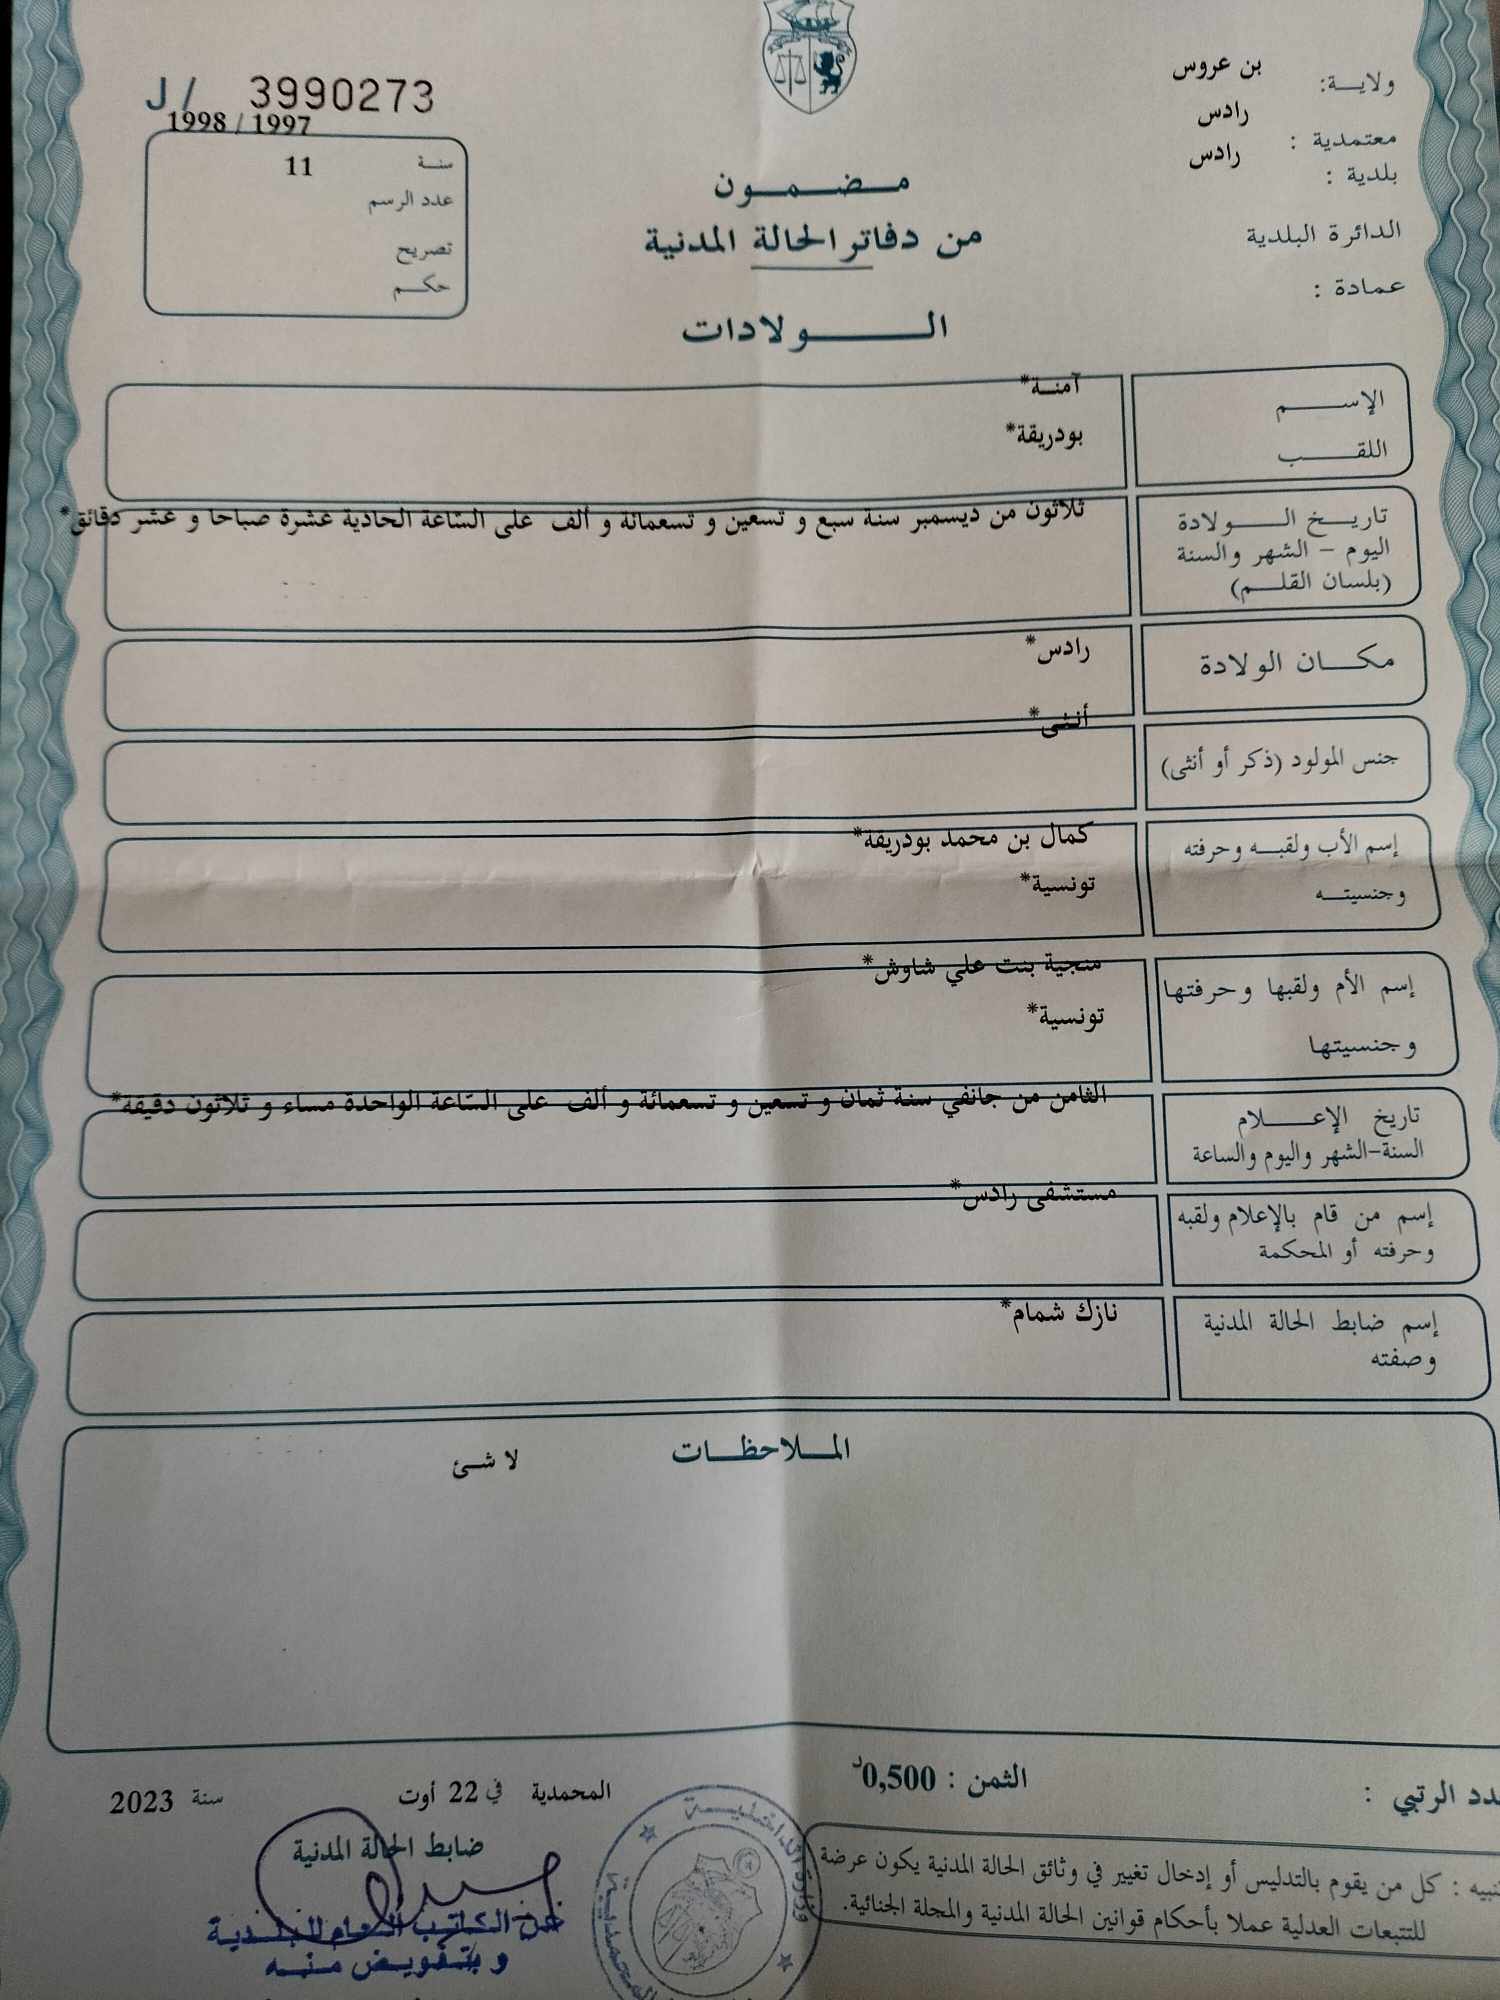 J / 3990273
1998 / 1997
سنة 11
عدد الرسم
تصريح
حكم
ولاية: بن عروس
معتمدية : رادس
بلدية : رادس
الدائرة البلدية
عمادة :
مضمون
من دفاتر الحالة المدنية
الولادات
الإسم آمنة*
اللقب بودريقة*
تاريخ الولادة ثلاثون من ديسمبر سنة سبع و تسعين و تسعمائة و ألف على السّاعة الحادية عشرة صباحا و عشر دقائق*
اليوم - الشهر والسنة
(بلسان القلم)
مكان الولادة رادس*
جنس المولود (ذكر أو أنثى) أنثى*
إسم الأب ولقبه وحرفته كمال بن محمد بودريقة*
وجنسيته تونسية*
إسم الأم ولقبها وحرفتها منجية بنت علي شاوش*
وجنسيتها تونسية*
تاريخ الإعلام الثامن من جانفي سنة ثمان و تسعين و تسعمائة و ألف على السّاعة الواحدة مساء و ثلاثون دقيقة*
السنة-الشهر واليوم والساعة
إسم من قام بالإعلام ولقبه مستشفى رادس*
وحرفته أو المحكمة
إسم ضابط الحالة المدنية نازك شمام*
وصفته
الملاحظات
لا شئ
الرتبي :
الثمن : 0,500د
المحمدية في 22 أوت سنة 2023
ضابط الحالة المدنية
عن الكاتب العام للبلدية
وبتفويض منه
وزارة الداخلية
كل من يقوم بالتدليس أو إدخال تغيير في وثائق الحالة المدنية يكون عرضة
للتتبعات العدلية عملا بأحكام قوانين الحالة المدنية والمجلة الجنائية.